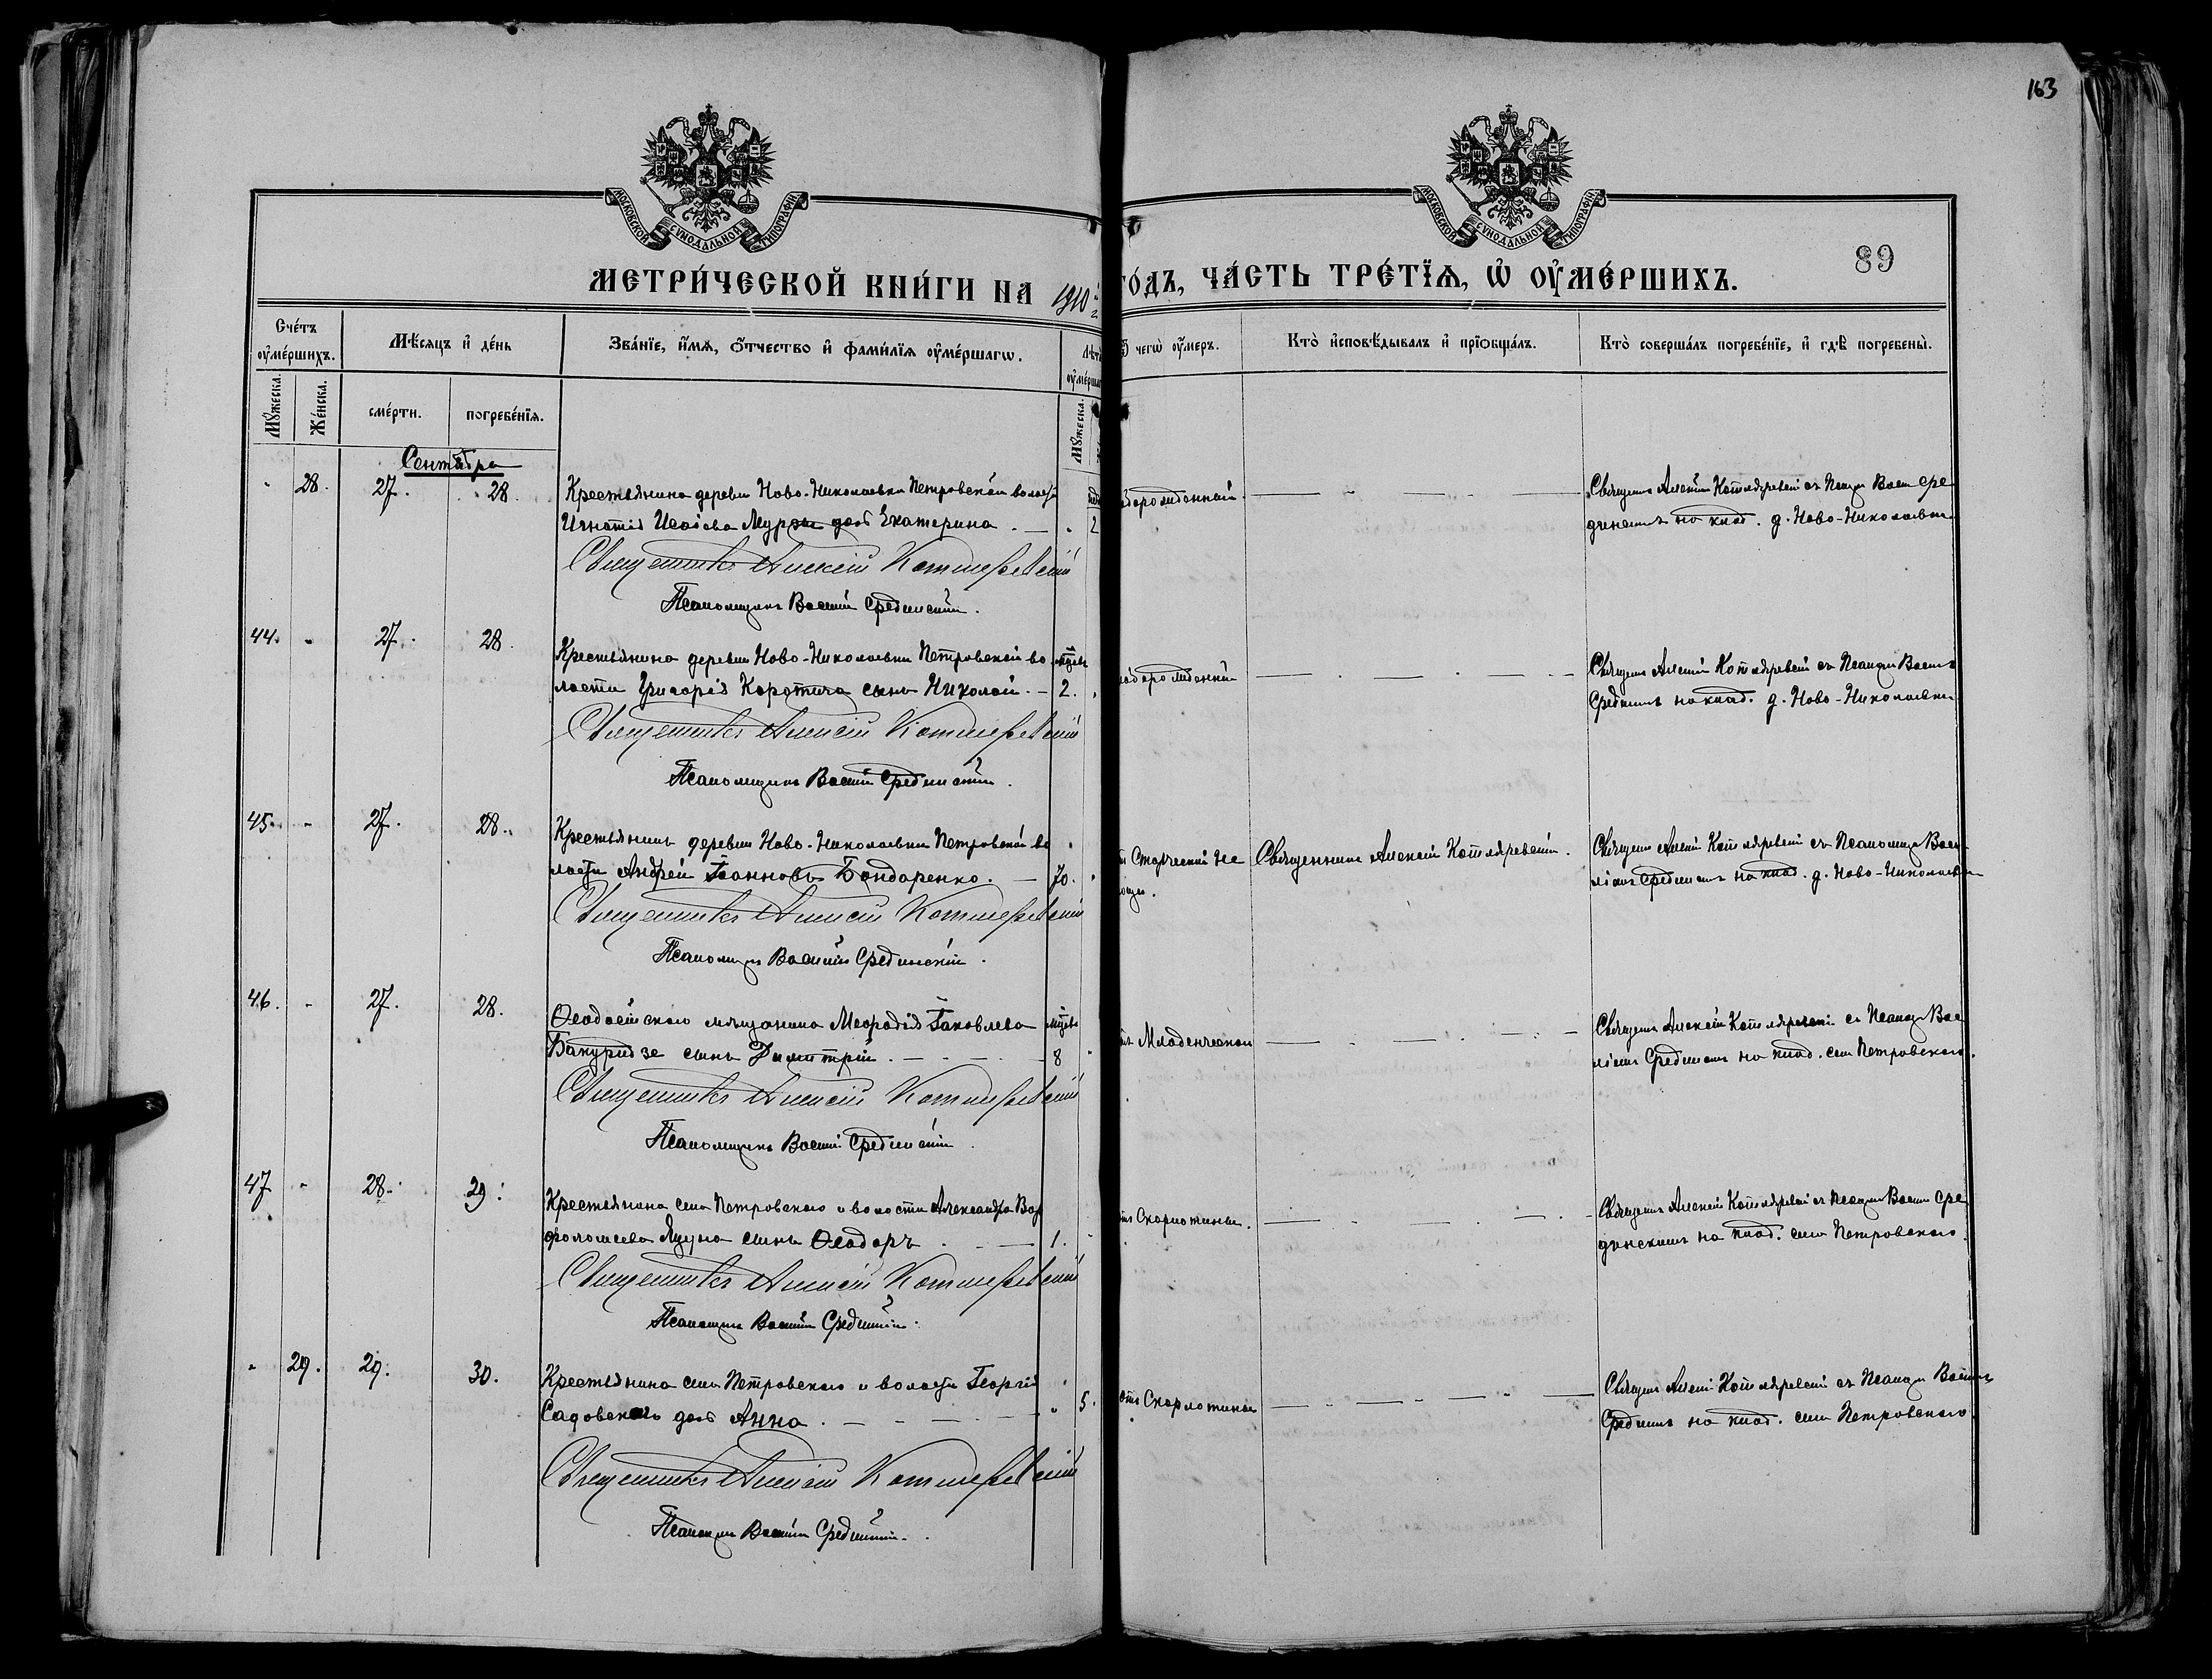 163
МОСКОВСКОЙ СѴНОДАЛЬНОЙ ТИПОГРАФІИ
МОСКОВСКОЙ СѴНОДАЛЬНОЙ ТИПОГРАФІИ
89
МЕТРИ́ЧЕСКОЙ КНИ́ГИ НА 1910 ГО́ДЪ, ЧА́СТЬ ТРЕ́ТЇѦ, Ѡ҆ ОУ҆МЕ́РШИХЪ.
Сче́тъ оу҆ме́ршихъ.
Мѣ́сяцъ и҆ де́нь
Зва́нїе, и҆́мѧ, ѻ҆́тчество и҆ фами́лїѧ оу҆ме́ршагѡ.
Лѣ́т
оу҆ме́рша
чегѡ̀ оу҆́меръ.
Кто̀ и҆сповѣ́дывалъ и҆ прїѡбща́лъ.
Кто̀ соверша́лъ погребе́нїе, и҆ гдѣ̀ погребены̀.
Мꙋ́жеска.
Же́нска.
сме́рти.
погребе́нїѧ.
Мꙋ́жеска.
Сентября
28. 27. 28. Крестьянина деревни Ново-Николаевки Петровской волости
Игнатія Исаіева Мурзы дочь Екатерина. 2
Священникъ Алексій Котляревскій
Псаломщикъ Василій Срединскій.
Священ. Алексій Котляревскій съ Псаломщ. Васил. Сре
динскимъ на клад. д. Ново-Николаевки
44. 27. 28. Крестьянина деревни Ново-Николаевки Петровской во
лости Григорія Коротича сынъ Николай. 2.
Священникъ Алексій Котляревскій
Псаломщикъ Василій Срединскій.
Священ. Алексій Котляревскій съ Псаломщ. Васил.
Срединскимъ на клад. д. Ново-Николаевки
45. 27. 28. Крестьянинъ деревни Ново-Николаевки Петровской во
лости Андрей Іоанновъ Бондаренко. 70.
Священникъ Алексій Котляревскій
Псаломщикъ Василій Срединскій.
Старческой не
мощи.
Священникъ Алексій Котляревскій.
Священ. Алексій Котляревскій съ Псаломщ. Васи
ліемъ Срединскимъ на клад. д. Ново-Николаевки
46. 27. 28. Ѳеодосійскаго мѣщанина Меѳодія Іаковлева мѣсяц.
Бакуридзе сынъ Димитрій. 8
Священникъ Алексій Котляревскій
Псаломщикъ Василій Срединскій.
Младенческой
Священ. Алексій Котляревскій съ Псаломщ. Васи
ліемъ Срединскимъ на клад. села Петровскаго.
47 28. 29. Крестьянина села Петровскаго и волости Александра Вар
ѳоломеева Яцуна сынъ Ѳеодоръ. 1.
Священникъ Алексій Котляревскій
Псаломщикъ Василій Срединскій.
отъ Скарлотины.
Священ. Алексій Котляревскій съ Псаломщ. Васил. Сре
динскимъ на клад. села Петровскаго.
29. 29. 30. Крестьянина села Петровскаго и волости Георгія
Садовскаго дочь Анна. 5.
Священникъ Алексій Котляревскій
Псаломщикъ Василій Срединскій.
отъ Скарлотины
Священ. Алексій Котляревскій съ Псаломщ. Васил.
Срединскимъ на клад. села Петровскаго